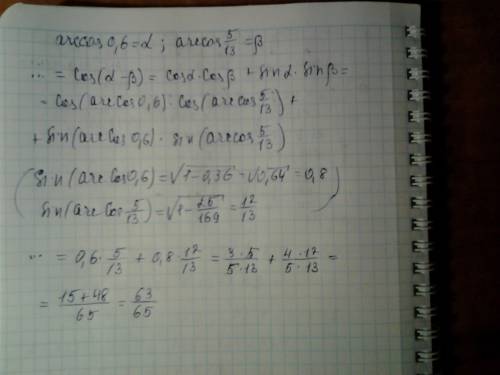 arccos 0,6 = α ; arccos 5/13 = β
... = cos(α-β) = cosα·cosβ + sinα·sinβ =
= cos(arccos0,6)·cos(arccos 5/13) +
+ sin(arccos 0,6)· sin(arccos 5/13)
(sin(arccos0,6) = √1-0,36 = √0,64 = 0,8
sin(arccos 5/13) = √1-25/169 = 12/13)
... = 0,6· 5/13 + 0,8· 12/13 = 3·5/5·13 + 4·12/5·13 =
= 15+48/65 = 63/65